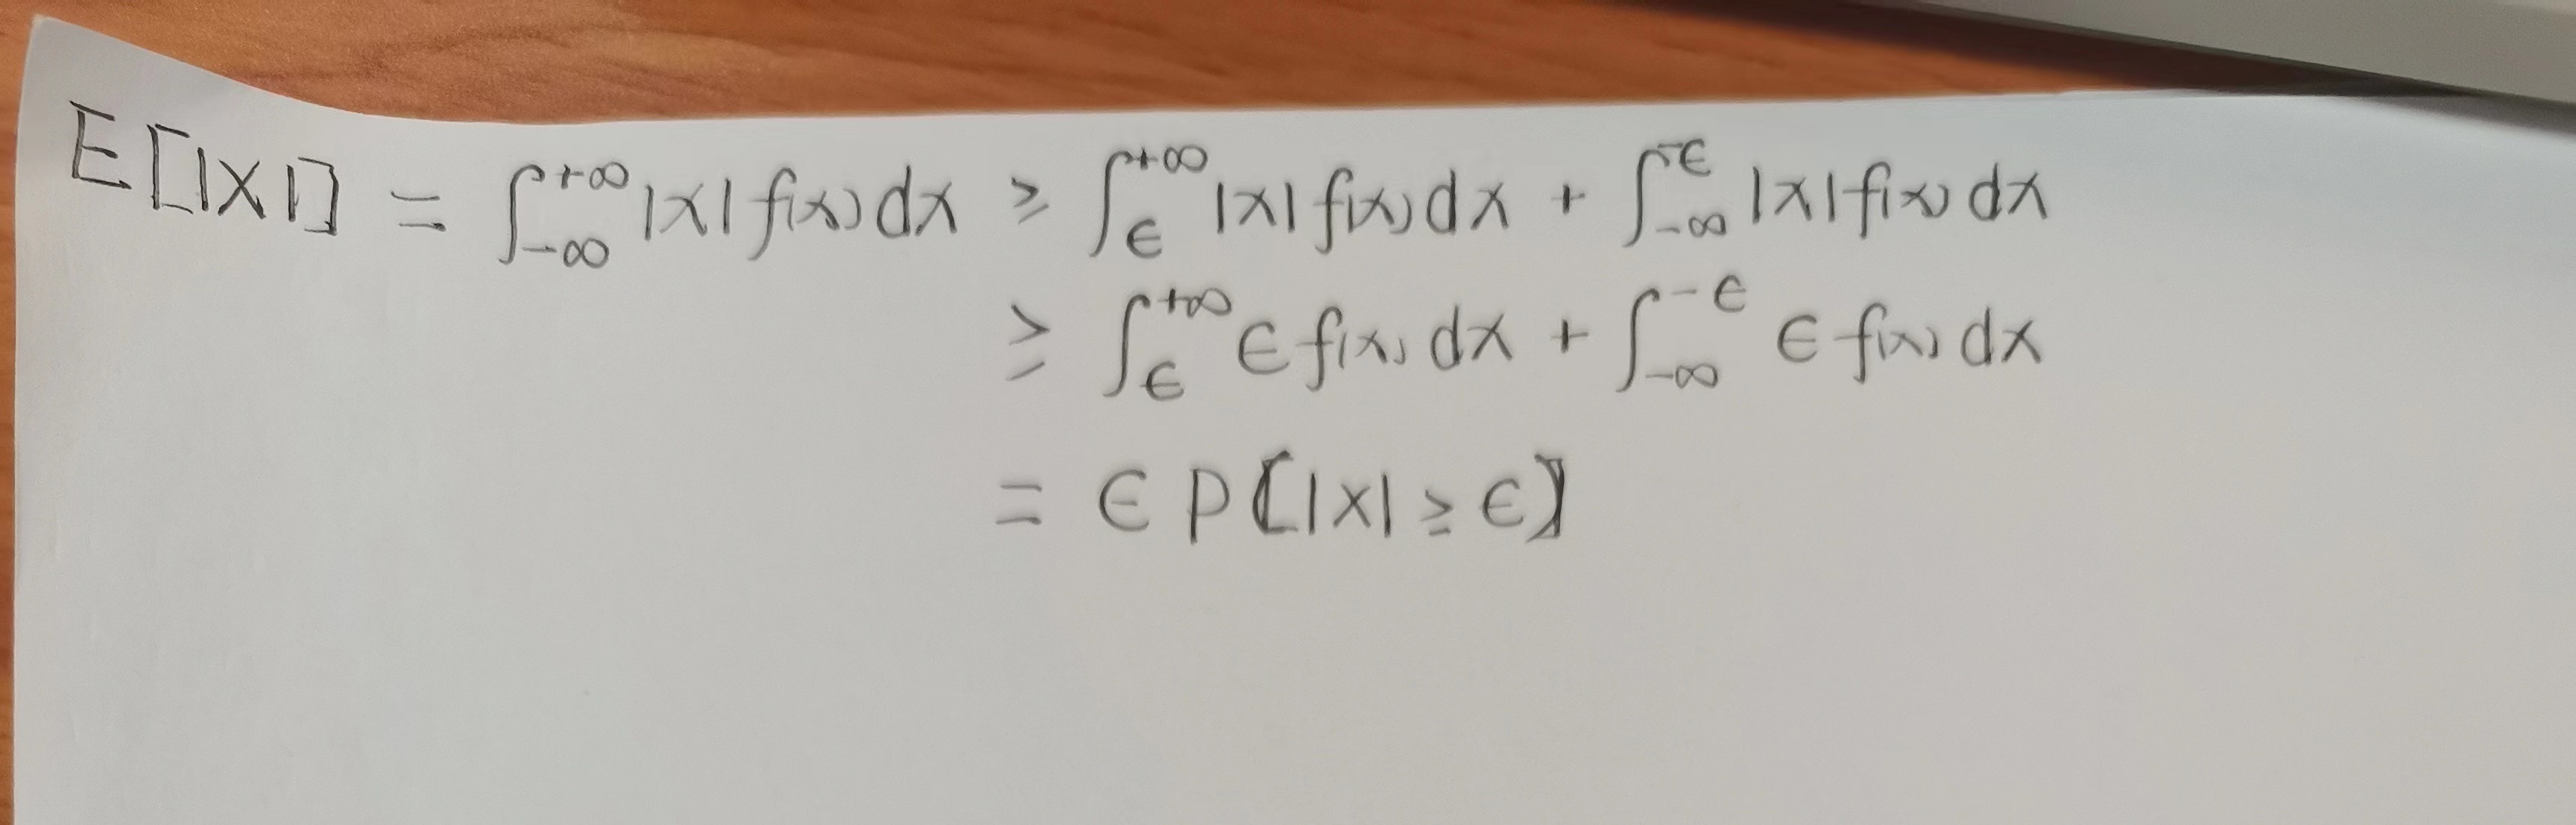 E[|X|] = ∫_{-∞}^{+∞} |x| f(x) dx ≥ ∫_{ϵ}^{+∞} |x| f(x) dx + ∫_{-∞}^{-ϵ} |x| f(x) dx
≥ ∫_{ϵ}^{+∞} ϵ f(x) dx + ∫_{-∞}^{-ϵ} ϵ f(x) dx
= ϵ P[|X| ≥ ϵ]